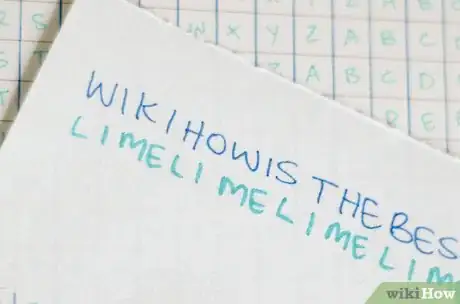 W X Y Z A B C
Z A B C D
WIKIHOWIS THE BES
LIMELIMELIMELIM
wikiHow